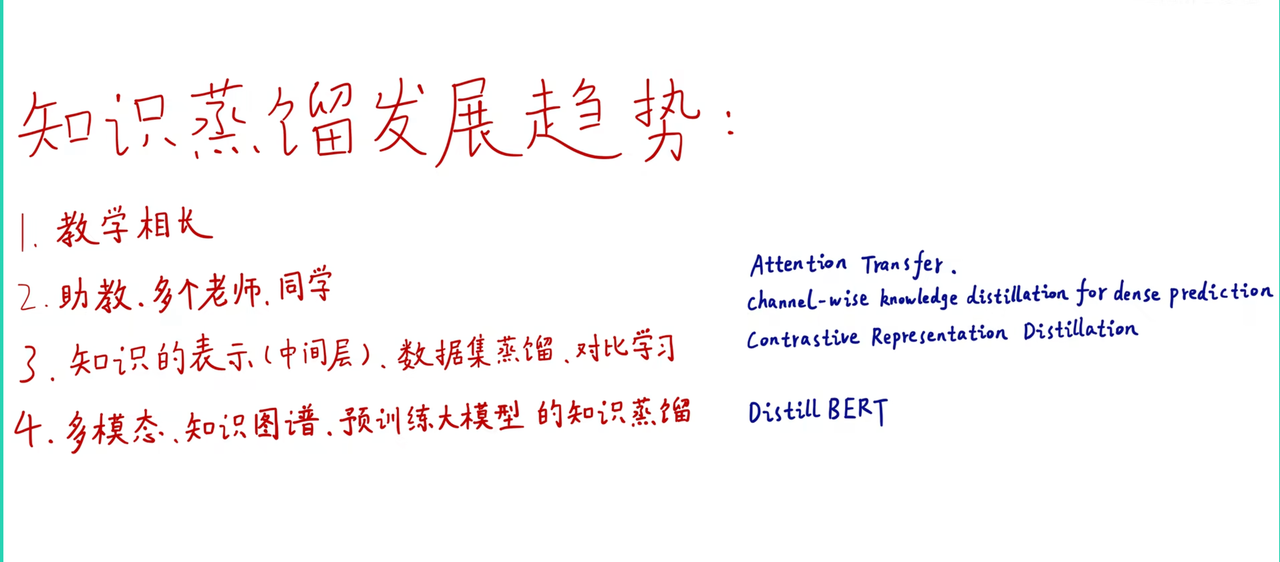 知识蒸馏发展趋势：
1. 教学相长
2. 助教、多个老师、同学
3. 知识的表示（中间层）、数据集蒸馏、对比学习
4. 多模态、知识图谱、预训练大模型 的知识蒸馏
Attention Transfer.
Channel-wise knowledge distillation for dense prediction
Contrastive Representation Distillation
Distill BERT